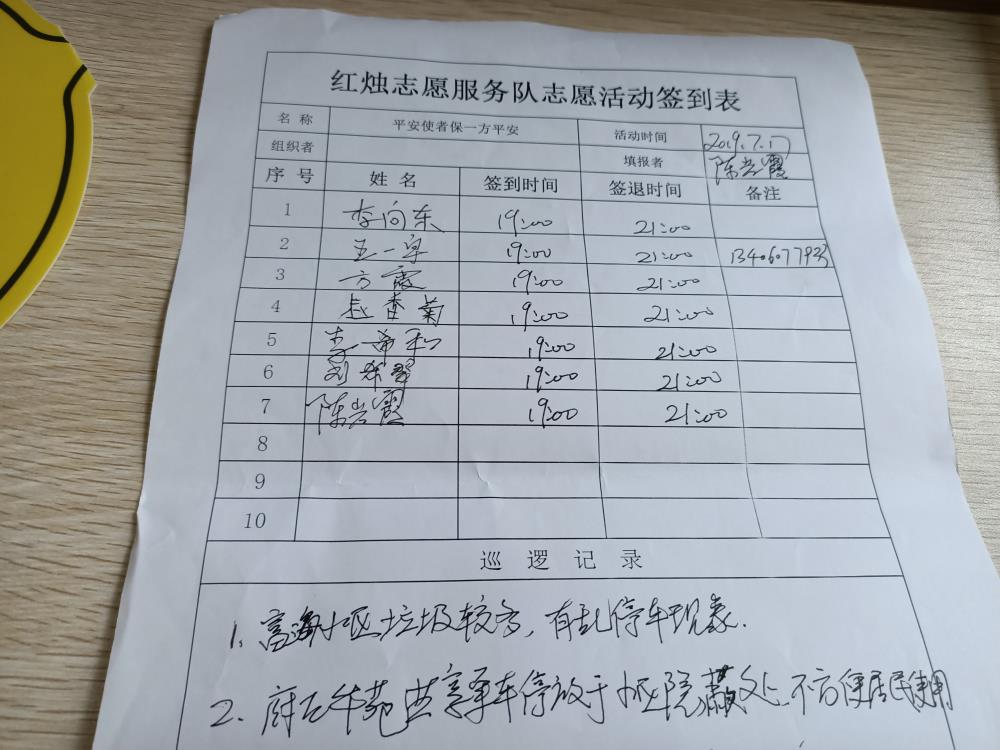 红烛志愿服务队志愿活动签到表
名 称 平安使者保一方平安 活动时间 2019.7.17
组织者 填报者 陈岩霞
序 号 姓 名 签到时间 签退时间 备注
1 李向东 19:00 21:00
2 王一宇 19:00 21:00
3 方霞 19:00 21:00
4 香菊 19:00 21:00
5 李希和 19:00 21:00
6 刘 19:00 21:00
7 陈岩霞 19:00 21:00
8
9
10
巡 逻 记 录
1. 小区垃圾较多，有乱停车现象.
2. 共享单车停放于小区隐藏处、不方便居民使用